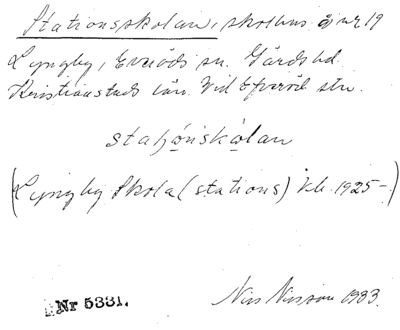 Stationsskolan, skolhus å nr 19
Lyngby, Everöds sn. Gärds hd.
Kristianstads län. Vid Everöd stn.
staʃónskolan
(Lyngby Skola (stations) kli. 1925-.)
Nils Nilsson 1983.
Nr 5331.